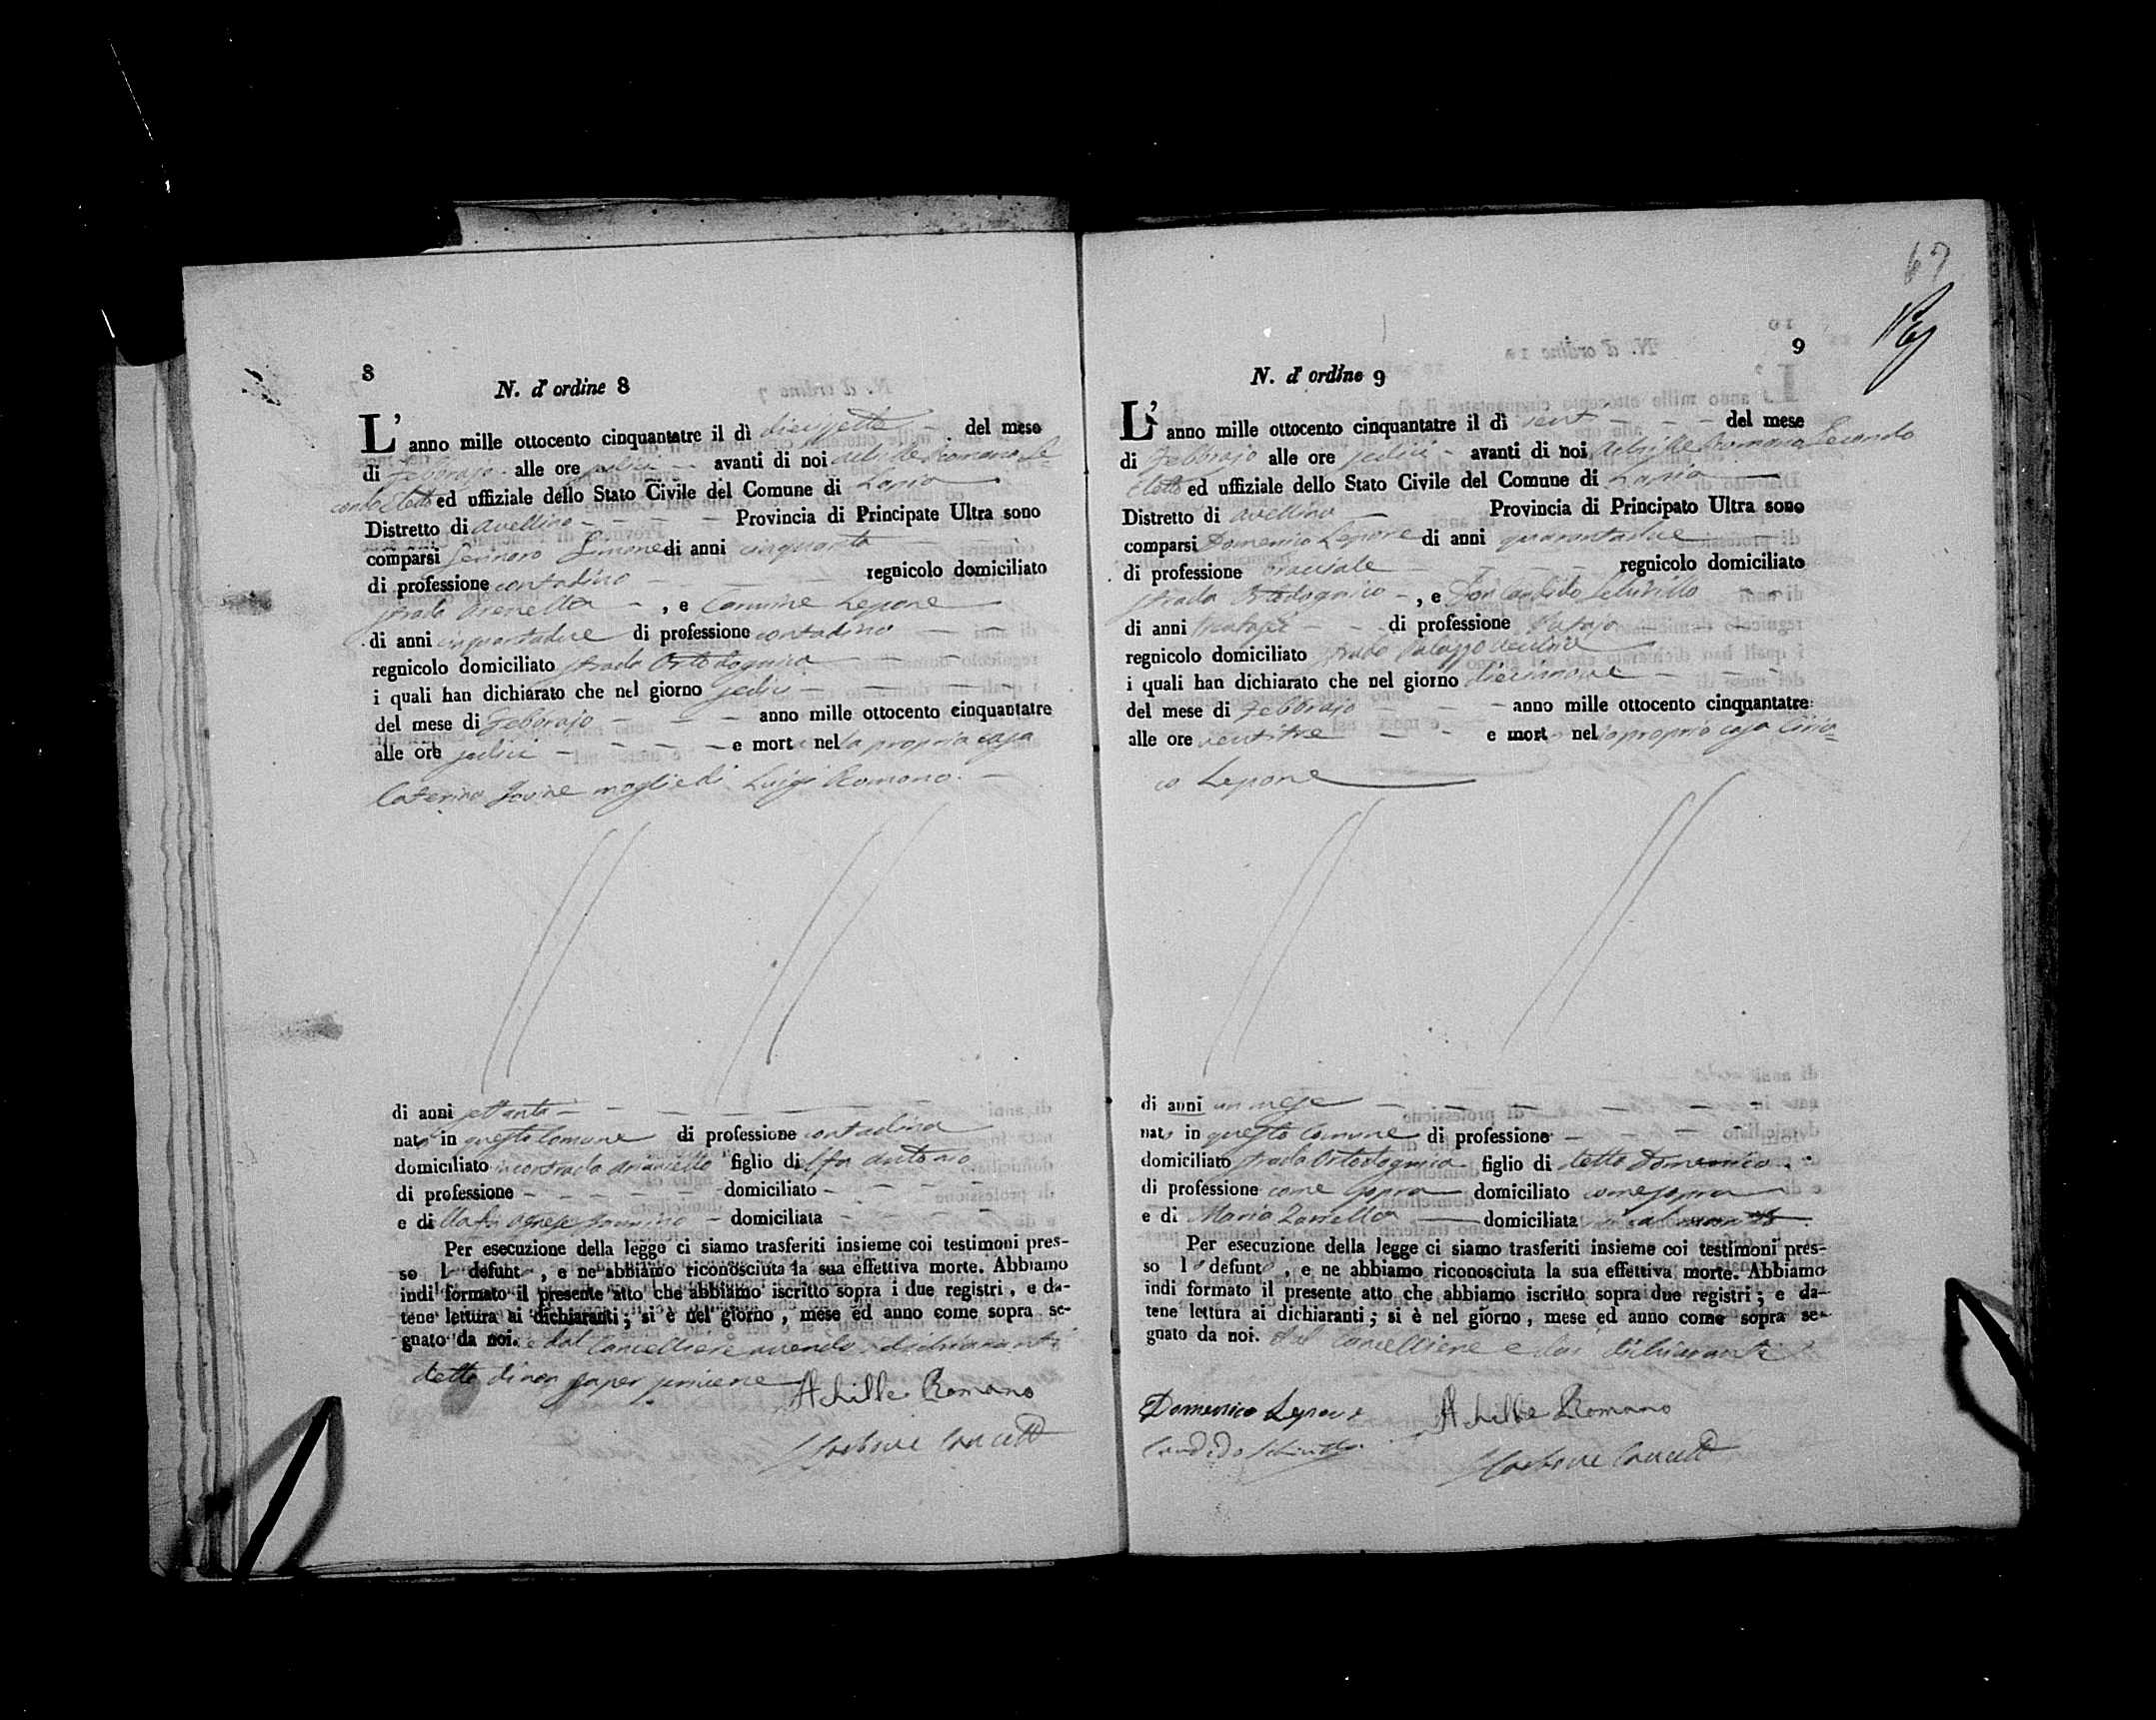 8
N. d' ordine 8
L' anno mille ottocento cinquantatre il dì diecisette del mese
di Febbrajo alle ore sedici avanti di noi Achille Romano Se=
condo Eletto ed uffiziale dello Stato Civile del Comune di Lapio
Distretto di Avellino Provincia di Principate Ultra sono
comparsi Gennaro Simone di anni cinquanta
di professione contadino regnicolo domiciliato
strada Arenella , e Carmine Lepore
di anni cinquantadue di professione contadino
regnicolo domiciliato strada Ortodognico
i quali han dichiarato che nel giorno sedici
del mese di Febbrajo anno mille ottocento cinquantatre
alle ore sedici e mort nella propria casa
Caterina Iovine moglie di Luigi Romano.
di anni settanta
nat in questo Comune di professione contadina
domiciliato in contrada figlio di Antonio
di professione domiciliato
e di Agnese domiciliata
Per esecuzione della legge ci siamo trasferiti insieme coi testimoni pres-
so l defunt , e ne abbiamo riconosciuta la sua effettiva morte. Abbiamo
indi formato il presente atto che abbiamo iscritto sopra i due registri , e da-
tene lettura ai dichiaranti ; si è nel giorno , mese ed anno come sopra se-
gnato da noi. e dal Cancelliere avendo i dichiaranti
detto di non saper scrivere
Achille Romano
67
9
N. d' ordine 9
L' anno mille ottocento cinquantatre il dì vent del mese
di Febbrajo alle ore sedici avanti di noi Achille Romano Secondo
Eletto ed uffiziale dello Stato Civile del Comune di Lapio
Distretto di Avellino Provincia di Principato Ultra sono
comparsi Domenico Lepore di anni quarantadue
di professione regnicolo domiciliato
strada Ortodognico , e Don Candido
di anni di professione
regnicolo domiciliato strada Palazzo
i quali han dichiarato che nel giorno diecinnove
del mese di Febbrajo anno mille ottocento cinquantatre
alle ore ventitre e mort nella propria casa Ciria=
co Lepore
di anni un mese
nato in questo Comune di professione
domiciliato strada Ortodognico figlio di detto Domenico
di professione come sopra domiciliato come sopra
e di Maria Zarrella domiciliata
Per esecuzione della legge ci siamo trasferiti insieme coi testimoni pres-
so lo defunto , e ne abbiamo riconosciuta la sua effettiva morte. Abbiamo
indi formato il presente atto che abbiamo iscritto sopra due registri ; e da-
tene lettura ai dichiaranti ; si è nel giorno , mese ed anno come sopra se-
gnato da noi. dal Cancelliere e dai dichiaranti
Domenico Lepore Achille Romano
Candido